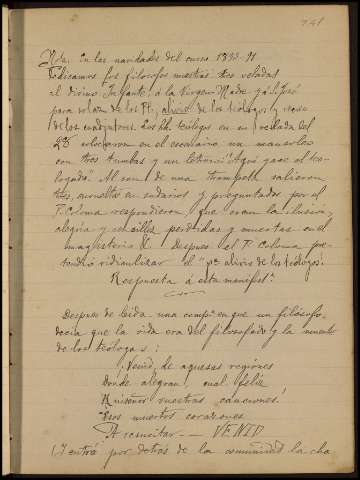 Nota. En las navidades del curso 1890-91
dedicamos los filósofos nuestras tres veladas
al divino Infante, á la Virgen Madre y á S. José
para solaz de los PP., alivio de los teólogos y
de los coadjutores. Los hh. teólogos en su velada del
28 colocaron en el escenario un mausoleo
con tres tumbas y un letrero: "Aquí yace el teo-
logado". Al son de una trompeta salieron
tres, envueltos en sudarios y preguntados por el
P. Coloma respondieron que eran la ilusión,
alegria y perdidas y muertas en el
magisterio &. Despues el P. Coloma pre-
tendió ridiculizar el "alivio de los teólogos".
Respuesta á esta manifest.
Despues de leida una comp. en que un filósofo
decia que la vida era del filosofado y la muerte
de los teólogos:
¡Venid, de aquesas regiones
Donde alegran, cual feliz
Ruiseñor vuestras canciones!
Esos muertos corazones
A resucitar — VENID
(Y entró por detrás de la comunidad la cha